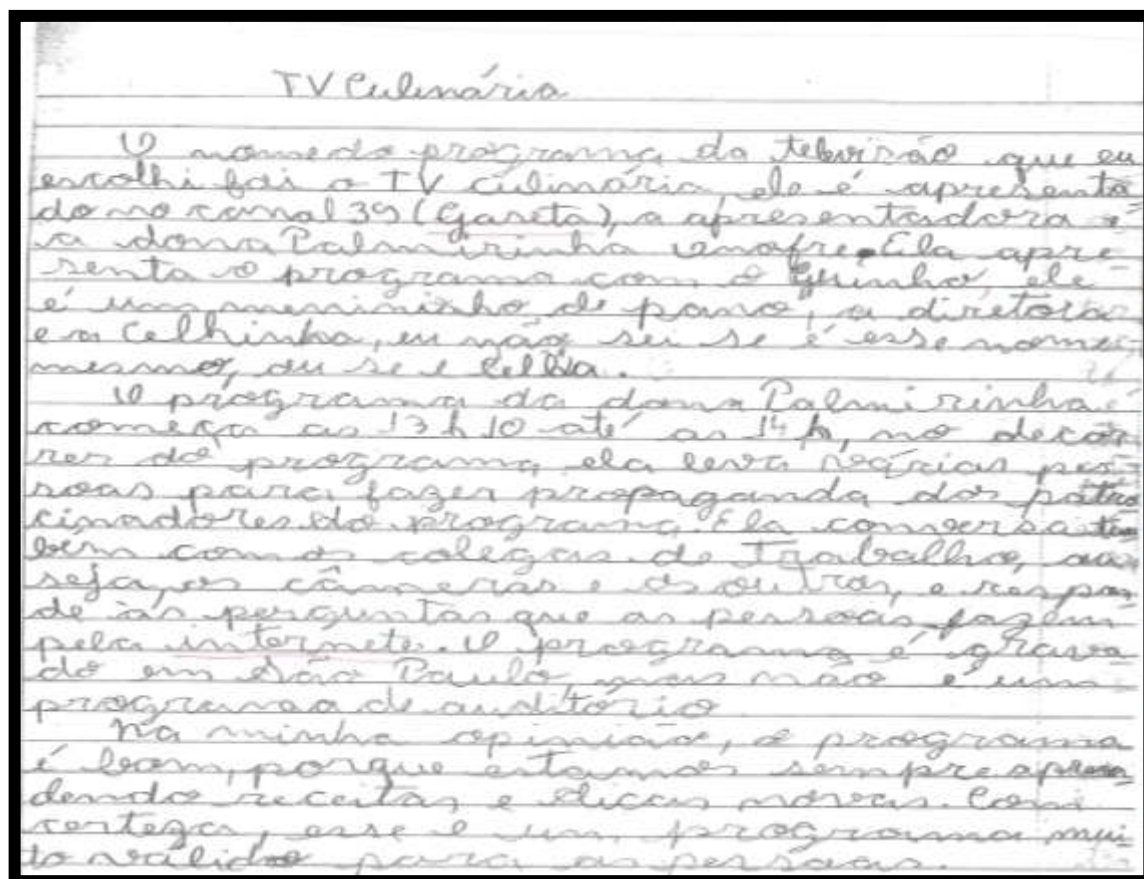 TV Culinária
O nome do programa da televisão que eu
escolhi foi o TV culinária, ele é apresenta
do no canal 39 (Gazeta), a apresentadora é
a dona Palmirinha Onofre. Ela apre
senta o programa com o Guinho, ele
é um menininho de pano, a diretora
e a Celhinha, eu não sei se é esse nome
mesmo, ou se é Cellia.
O programa da dona Palmirinha
começa as 13 h 10 até as 14 h, no decor
rer do programa, ela leva várias pes
soas para fazer propaganda dos patro
cinadores do programa. Ela conversa tam
bém com os colegas de trabalho, ou
seja, os câmeras e os outros, e respon
de às perguntas que as pessoas fazem
pela internete. O programa é grava
do em São Paulo, mas não é um
programa de auditório
Na minha opinião, o programa
é bom, porque estamos sempre apren
dendo receitas, e dicas novas. Com
certeza, esse é um programa mui
to válido para as pessoas.